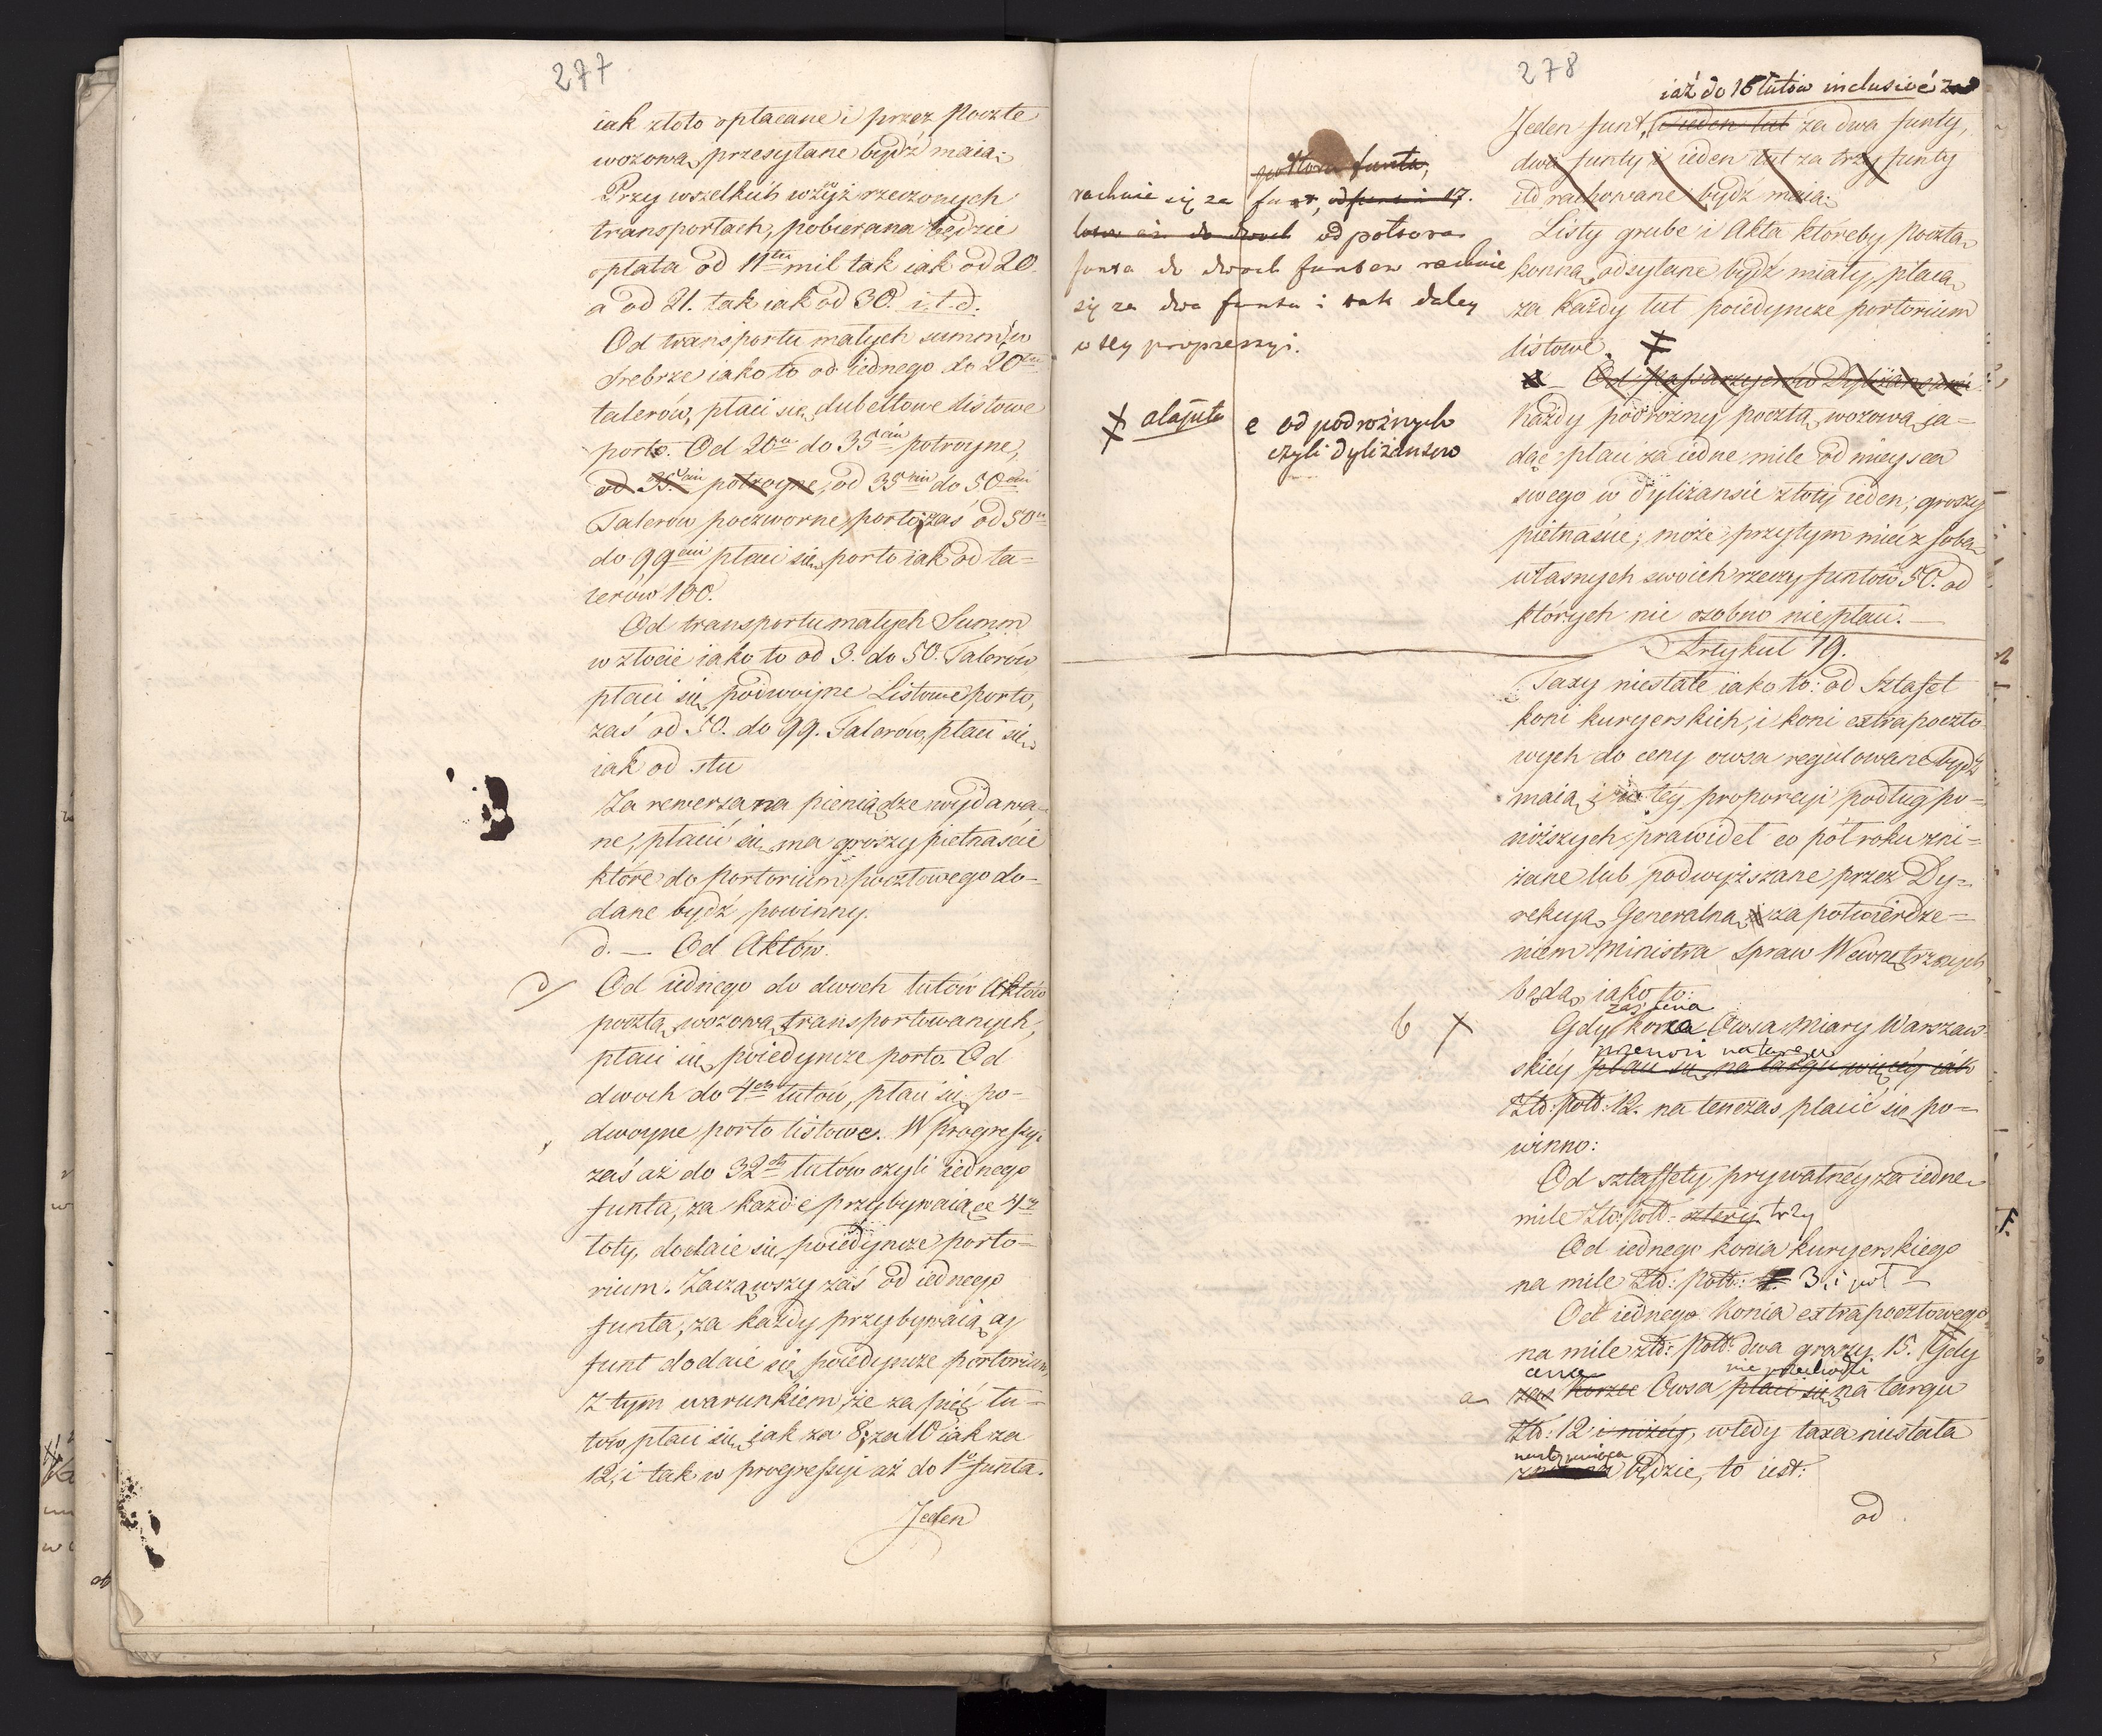 277
iak złoto opłacane i przez Pocztę
wozową przesyłane bydź maią.
Przy wszelkich wżyż rzeczonych
transportach, pobierana będzie
opłata od 11tu mil tak iak od 20.
a od 21. tak iak od 30. i.t.d.
Od transportu małych summ w
Srebrze iako to od iednego do 20tu
talerów, płaci się dubeltowe listowe
porto. Od 20tu do 35ciu potroyne,
od 35ciu potroyne, od 35ciu do 50ciu
Talerow poczworne porto, zaś od 50u
do 99ciu płaci się porto iak od ta=
lerów 100.
Od transportu małych Summ
w złocie iako to od 3. do 50. Talerów
płaci się podwoyne Listowe porto,
zaś od 50. do 99. Talerów, płaci się
iak od stu
Za rewersa na pieniądze wydawa=
ne, płacić się ma groszy piętnaście
które do portorium pocztowego do=
dane bydź powinny.
d. — Od Aktów.
d/ Od iednego do dwoch łutów Aktów
pocztą wozową transportowanych,
płaci się poiedyncze porto. Od
dwoch do 4ch łutów, płaci się po-
dwoyne porto listowe. W progressyi
zaś aż do 32ch łutów czyli iednego
funta, za każde przybywaiące 4ry
łoty, dodaie się poiedyncze porto=
rium. Zacząwszy zaś od iednego
funta, za każdy przybywaiący
funt dodaie się poiedyncze portorium,
z tym warunkiem, że za pięć łu=
tów, płaci się iak za 8, za 10 iak za
12, i tak w progressyi aż do 1o funta.
Jeden
278
iaż do 16 łutów inclusivé za
Jeden funt, i ieden łut za dwa funty,
dwa funty i ieden łut za trzy funty
itd rachowane bydź maią.
półtora funta,
rachuie się za funt, 17.
łuta aż do dwoch od półtora
funta do dwoch funtow rachuie
się za dwa funta i tak daley
w tey progressyi.
Listy grube i Akta któreby Pocztą
konną odsyłane bydź miały, płacą
za każdy łut poiedyncze portorium
listowe.
Od Passarzyerów Dyliżansowi
e od podrożnych
czyli dyliżansow
Każdy podrożny pocztą wozową ia=
dąc płaci za iednę milę od mieysca
swego w dyliżansie złoty ieden, groszy
piętnaście, może przytym mieć z sobą
własnych swoich rzeczy funtów 50. od
których nic osobno niepłaci. —
Artykuł 19.
Taxy niestałe iako to: od Sztafet
koni kuryerskich, i koni extrapoczto=
wych do ceny owsa regulowane bydź
maią i w téy proporcyi podług po=
niższych prawideł co pół roku zni=
żane lub podwyższane przez Dy=
rekcyą Generalną za potwierdze=
niem Ministra Spraw Wewnętrznych
będą, iako to:
zaś cena
b X Gdy korca Owsa Miary Warszaw=
skiéy płaci się na targu więcéy iak
Złd: Pold: 12. na tenczas płacić się po=
winno:
Od sztaffety prywatnéy za iednę
milę Złd: pold: cztery trzy
Od iednego konia kuryerskiego
na milę Złd: Pold: 3. i puł —
Od iednego konia extrapocztowego
na milę złd: Pold: dwa groszy 15. Gdy
cena nie przechodzi
a zaś korzec Owsa płaci się na targu
Złd: 12 i niżéy, wtedy taxa niestała
następuiąca
będzie, to iest:
od